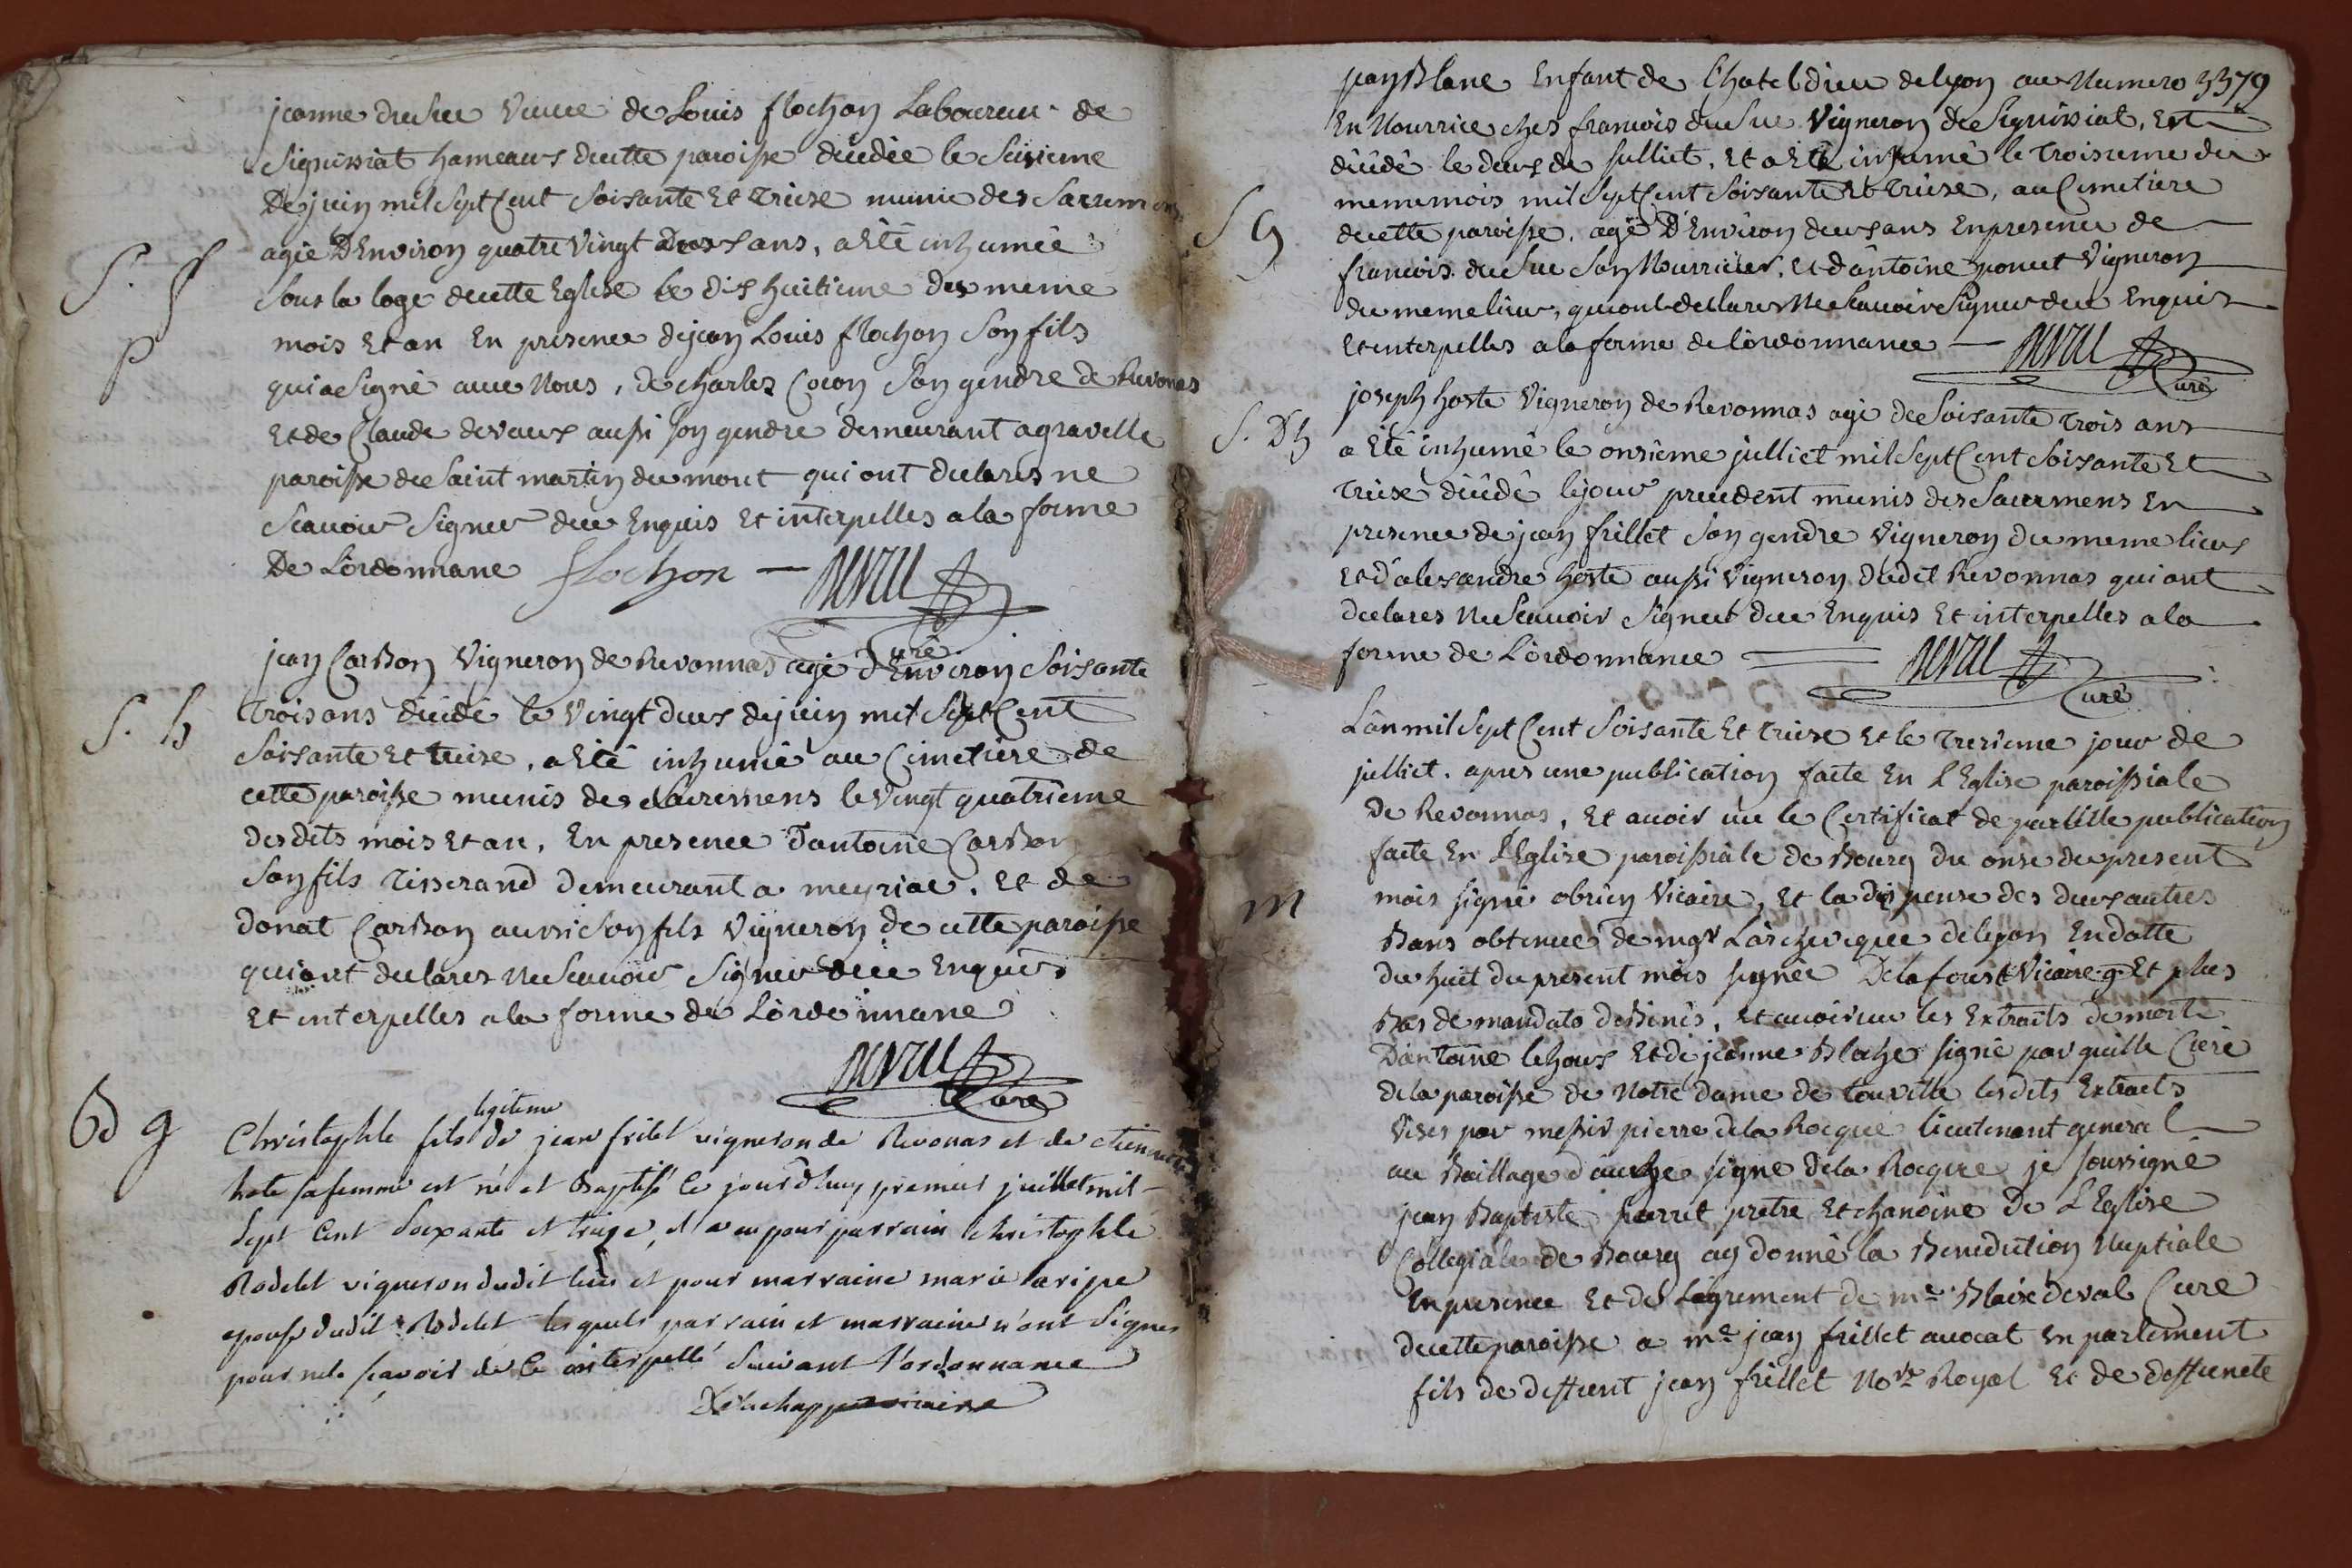 jeanne dusuc Veuve de Louis flochon Laboureur de
Signissiat hameaus decette paroisse décédée le Seisieme
De juin mil Sept Cent Soisante Et treise munie des Sacremens
agée D'Environ quatre Vingt Deus ans, a Eté inhumée
Sous la loge decette Eglise le dis huitieme des meme
S. f
mois Et an En présence dejean Louis flochon Son fils
p
qui a Signé avec Nous, de charles Cocon Son gendre de Revonas
Et de Claude devaus aussi son gendre demeurant a gravelle
paroisse de Saint martin du mont qui ont declares ne
Scavoir Signer de ce Enquis Et interpelles a la forme
De Lordonnance flochon — deval
Curé
jean Carbon Vigneron de Revonnas agé d'Environ Soisante
trois ans décédé le Vingt deus dejuin mil Sept Cent
S. h
Soisante Et treise, a Eté inhumé au Cimetiere de
cette paroisse munis des Sacremens le Vingt quatrieme
desdits mois Et an, En presence d'antoine Carbon
Son fils tisserand demeurant a meyriat, Et de
donat Carbon aussi Son fils Vigneron de cette paroisse
qui ont declares Ne Scavoir Signer de ce Enquis
Et interpelles a la forme de Lordonnance
deval
Curé
B g
legitime
Christophle fils de jean frilet vigneron de Revonas et de etiennette
hote sa femme est né et Baptisé le jourd'huy premier juillet mil
Sept Cent Soixante et treize, et a eu pour parrain christophle
Rodelet vigneron dudit lieu et pour marraine marie laripe
epouse dudit Rodelet lesquels parrain et marraine n'ont Signes
pour ne le sçavoir de ce interpellé Suivant l'ordonnance
Delachapp vicaire
jean Blanc Enfant de l'hotel dieu de lyon au Numero 3379
En Nourrice ches francois duSuc Vigneron de Signissiat, Est
décédé le deus de julliet, Et a Eté inhumé le troisieme du
meme mois mil Sept Cent Soisante Et treise, au Cimetiere
S g
decette paroisse, agé D'Environ deus ans En presence de
francois duSuc Son Nourricier, Et d'antoine poncet Vigneron
du meme lieu, qui ont declares Ne Scavoir Signer de ce Enquis
Et interpelles a la forme de lordonnance — deval
Curé
joseph hoste Vigneron de Revonnas agé de Soisante trois ans
S. Dh
a Eté inhumé le onsieme julliet mil Sept Cent Soisante Et
treise décédé lejour precedent munis des Sacremens En
presence de jean frillet Son gendre Vigneron du meme lieus
Et d'alesandre hoste aussi Vigneron dudit Revonnas qui ont
declares Ne Scavoir Signer de ce Enquis Et interpelles a la
forme de Lordonnance deval
Curé
L'an mil Sept Cent Soisante Et treise Et le tresieme jour de
julliet. apres une publication faite En L'Eglise paroissiale
De Revonnas, Et avoir vu le Certificat de pareille publication
faite En L'Eglise paroissiale de Bourg du onse du present
mois signé obrien Vicaire, Et la dispense des deus autres
m
Bans obtenue de mgr Larcheveque de lyon En datte
du huit du present mois signée Delafourst Vicaire g. Et plus
Bas de mandato deBinés, Et avoir vu les Extraits de mort
D'antoine lehous Et de jeanne Blache signé par quille Curé
de la paroisse de Notre dame de touville lesdits Extraits
Visés par messir pierre dela Rocque lieutenant general
au Baillage d'auche signé dela Rocque je soussigné
jean Baptiste parret pretre Et chanoine De L'Eglise
Collegiale de Bourg ay donné la Benediction Nuptiale
En presence Et de L'agrement de me Blaise deval Curé
decette paroisse a me jean frillet avocat En parlement
fils de deffunt jean frillet Nore Royal Et de deffunete